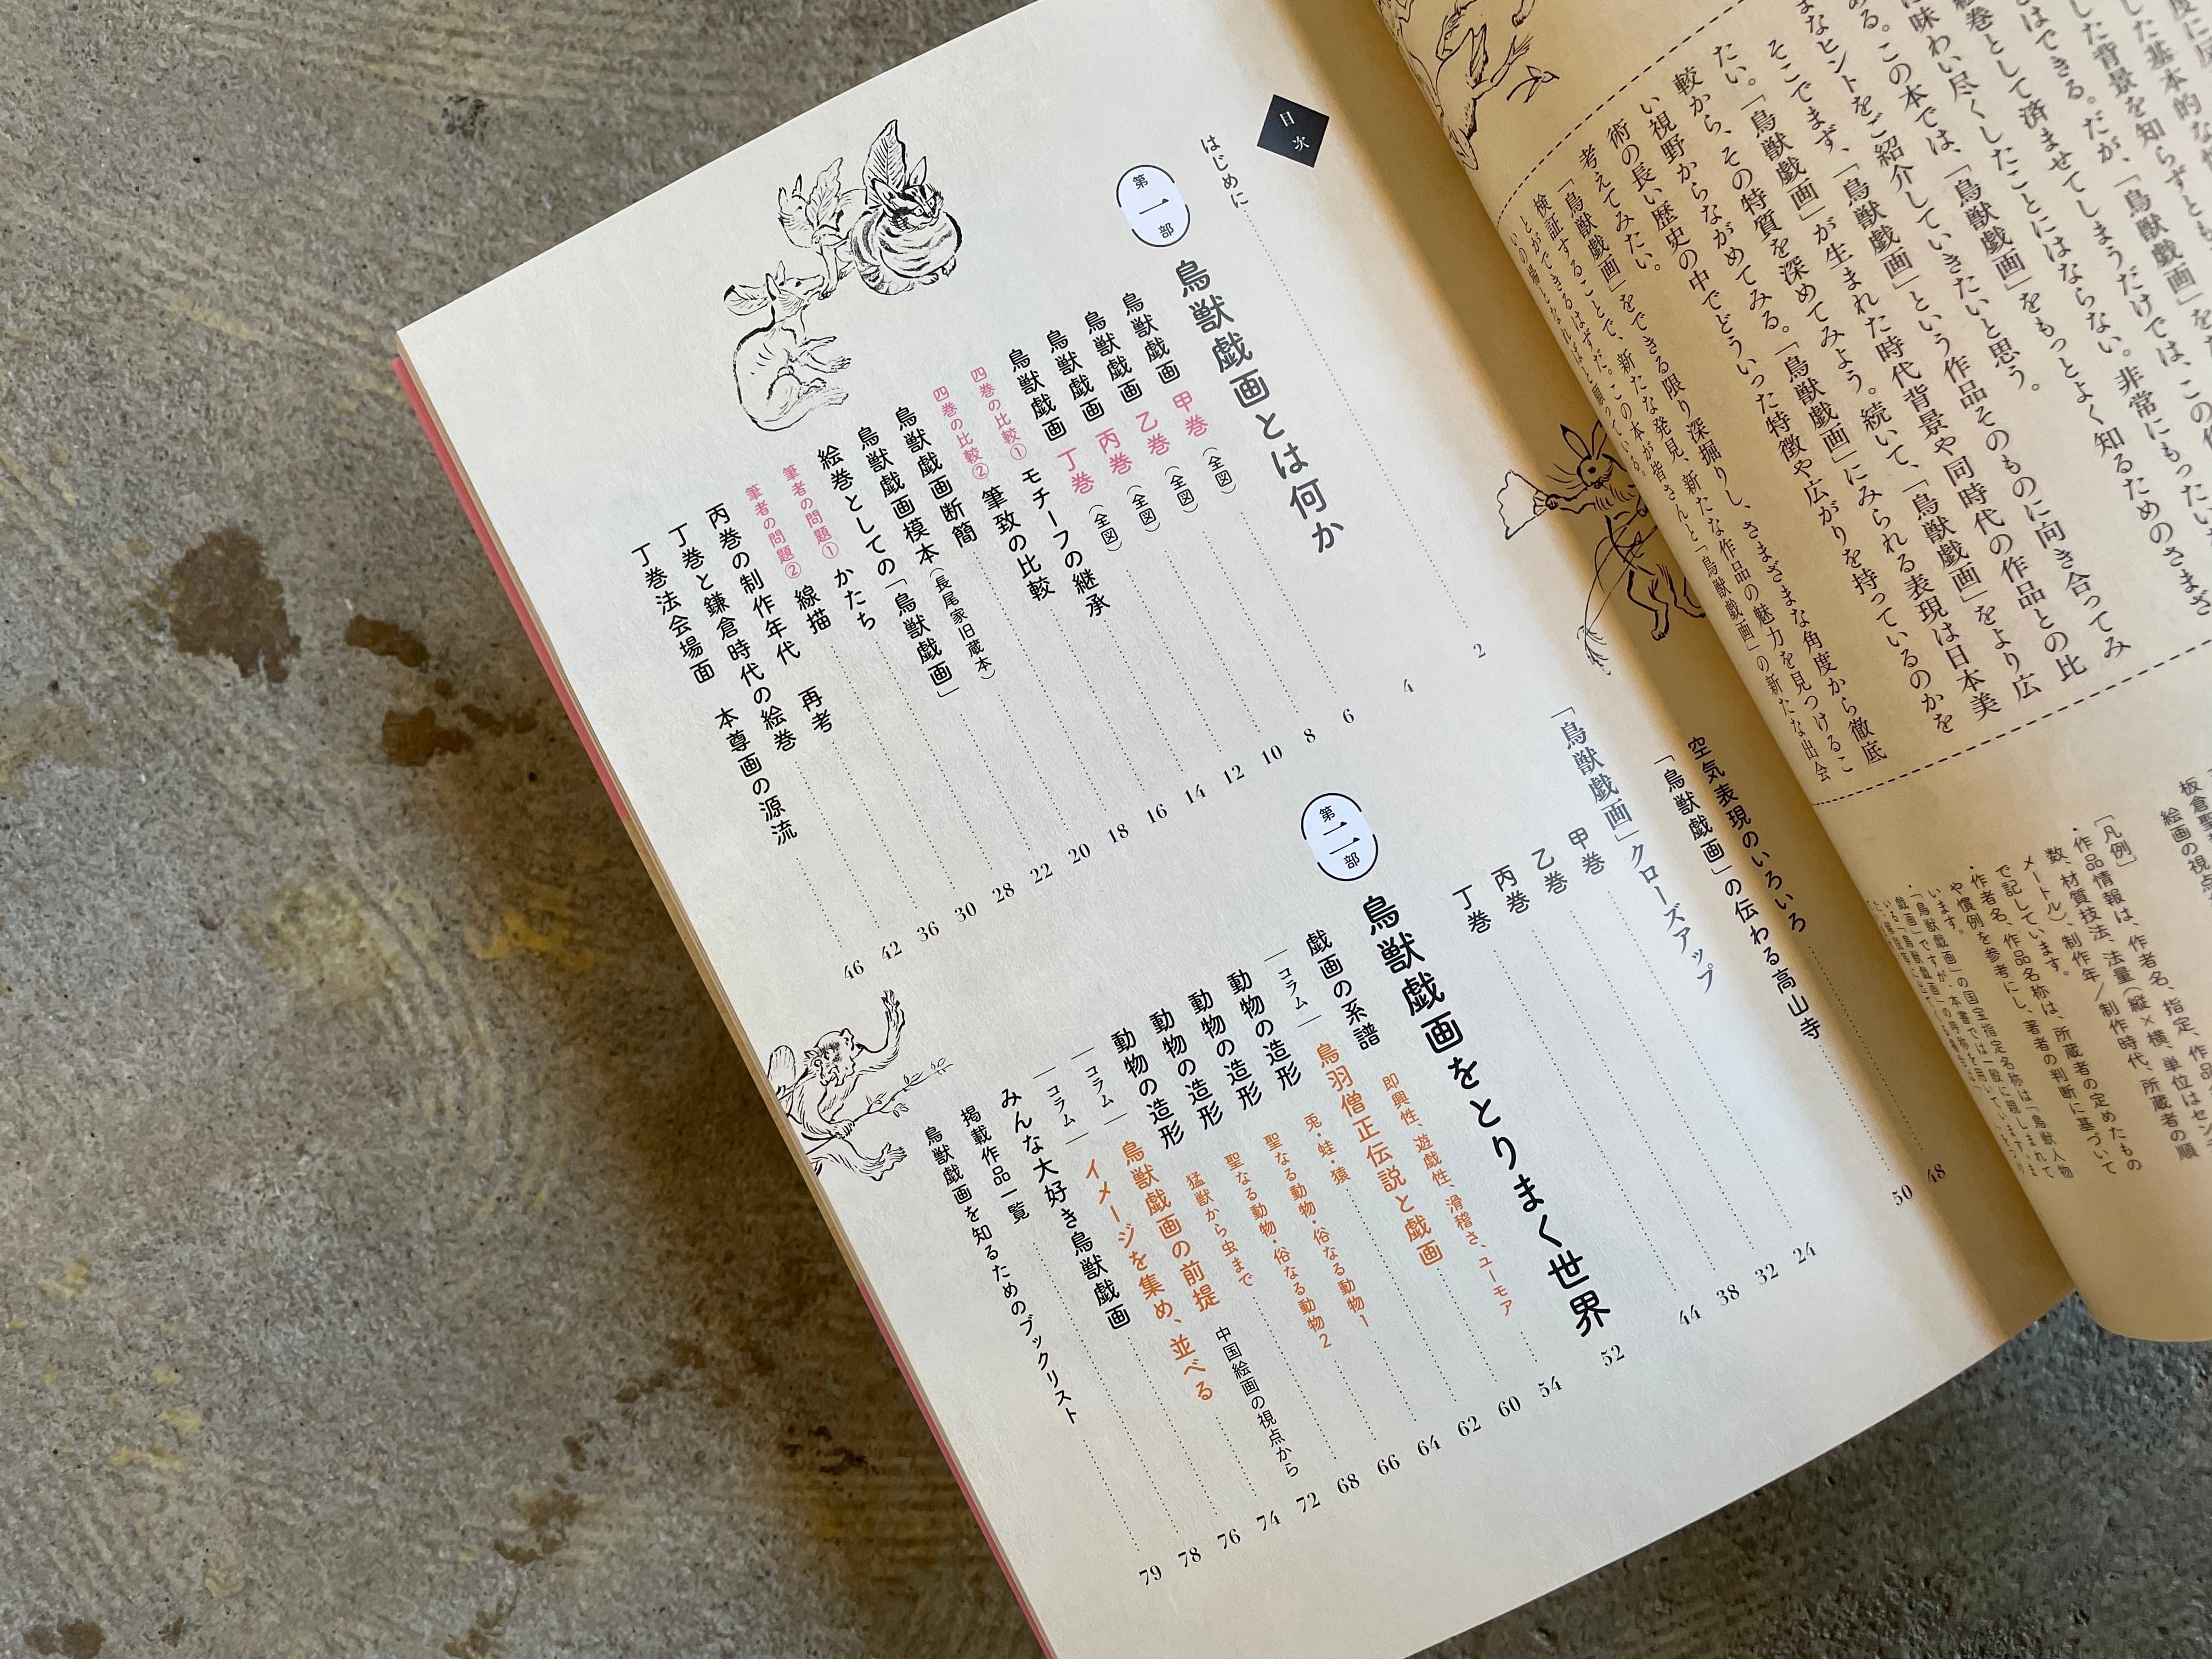 した基本的な
した背景を知らずとも
はできる。だが、「鳥獣戯画」を
絵巻として済ませてしまうだけでは、この作
味わい尽くしたことにはならない。非常にもったい
ある。この本では、「鳥獣戯画」をもっとよく知るためのさまざ
まなヒントをご紹介していきたいと思う。
そこでまず、「鳥獣戯画」という作品そのものに向き合ってみ
たい。「鳥獣戯画」が生まれた時代背景や同時代の作品との比
較から、その特質を深めてみよう。続いて、「鳥獣戯画」をより広
い視野からながめてみる。「鳥獣戯画」にみられる表現は日本美
術の長い歴史の中でどういった特徴や広がりを持っているのかを
考えてみたい。
「鳥獣戯画」をできる限り深掘りし、さまざまな角度から徹底
検証することで、新たな発見、新たな作品の魅力を見つけるこ
とができるはずだ。この本が皆さんと「鳥獣戯画」の新たな出会
いの場となればと願っている。
板倉聖
絵画の視点
[凡例]
・作品情報は、作者名、指定、作品
数、材質技法、法量(縦×横、単位はセン
メートル)、制作年/制作時代、所蔵者の順
で記しています。
・作者名、作品名称は、所蔵者の定めたもの
や慣例を参考にし、著者の判断に基づいて
います。
目次
はじめに 2
第一部 鳥獣戯画とは何か 4
鳥獣戯画 甲巻(全図) 6
鳥獣戯画 乙巻(全図) 8
鳥獣戯画 丙巻(全図) 10
鳥獣戯画 丁巻(全図) 12
四巻の比較① モチーフの継承 14
四巻の比較② 筆致の比較 16
鳥獣戯画断簡 18
鳥獣戯画模本(長尾家旧蔵本) 20
絵巻としての「鳥獣戯画」 22
筆者の問題① かたち 28
筆者の問題② 線描 30
丙巻の制作年代 再考 36
丁巻と鎌倉時代の絵巻 42
丁巻法会場面 本尊画の源流 46
空気表現のいろいろ 48
「鳥獣戯画」の伝わる高山寺 50
「鳥獣戯画」クローズアップ
甲巻 24
乙巻 32
丙巻 38
丁巻 44
第二部 鳥獣戯画をとりまく世界 52
戯画の系譜 即興性、遊戯性、滑稽さ、ユーモア 54
―コラム― 鳥羽僧正伝説と戯画 60
動物の造形 兎・蛙・猿 62
動物の造形 聖なる動物・俗なる動物1 64
動物の造形 聖なる動物・俗なる動物2 66
動物の造形 猛獣から虫まで 68
―コラム― 鳥獣戯画の前提 中国絵画の視点から 72
―コラム― イメージを集め、並べる 74
みんな大好き鳥獣戯画 76
掲載作品一覧 78
鳥獣戯画を知るためのブックリスト 79